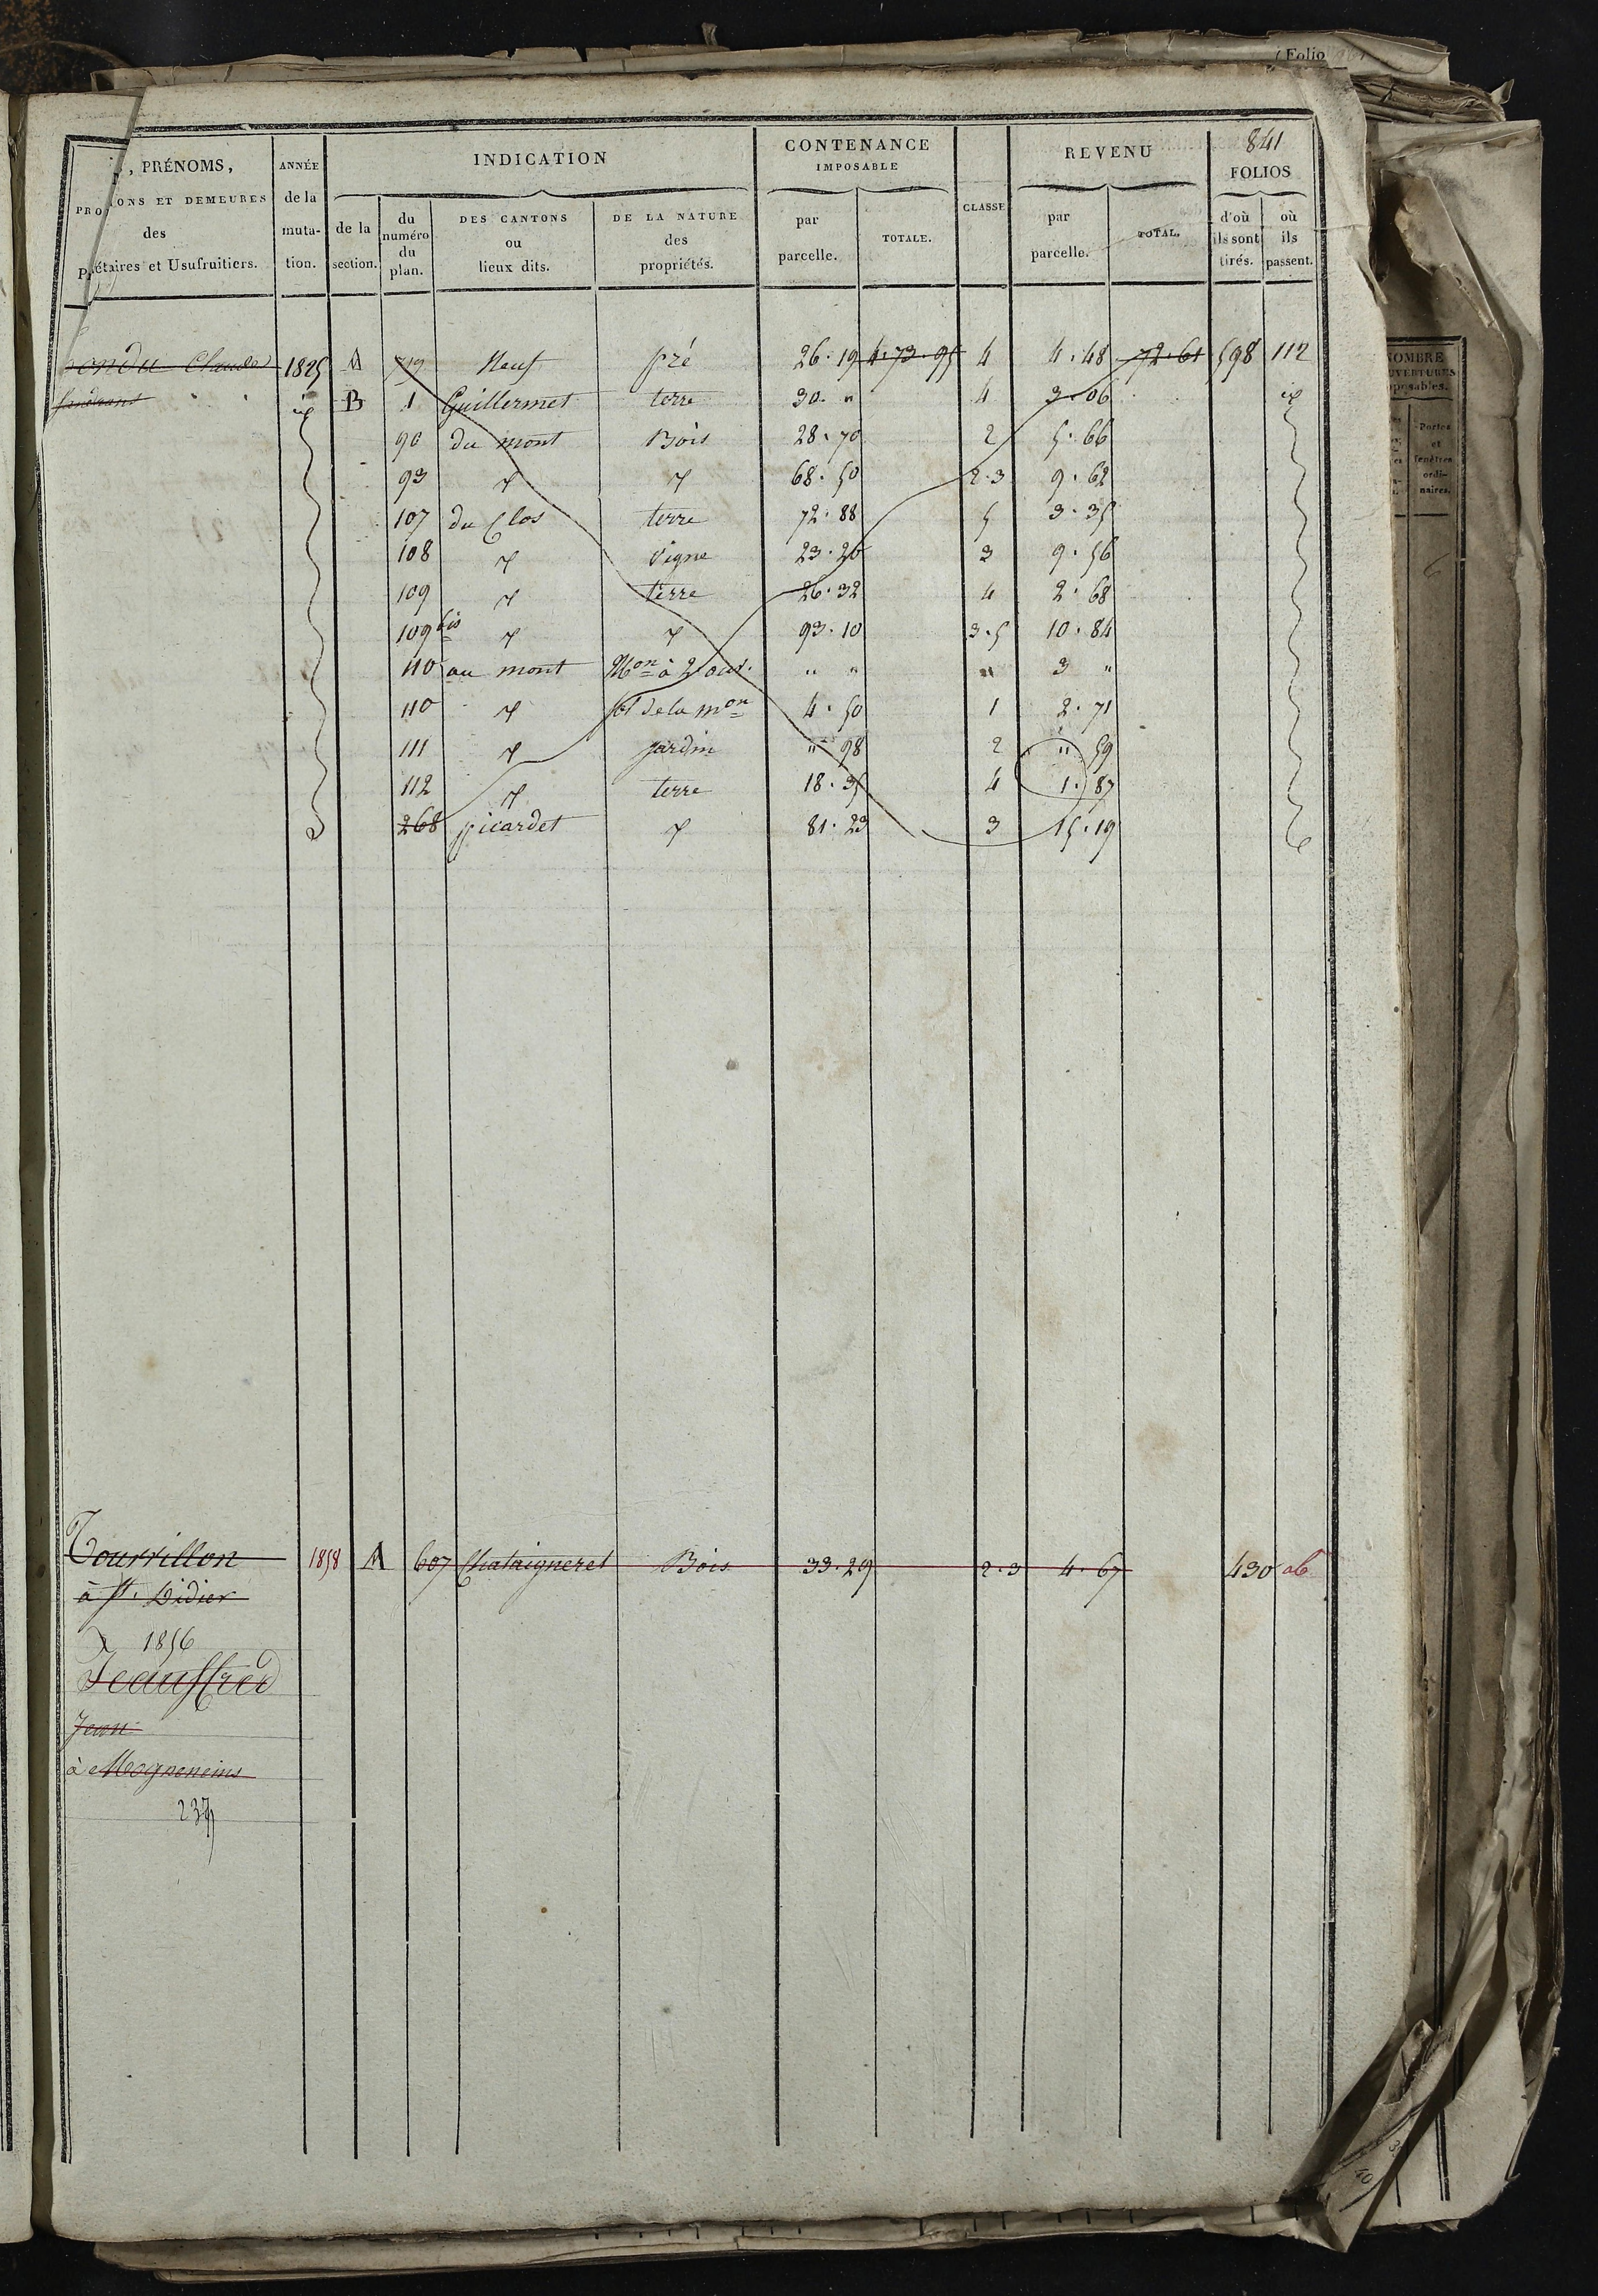 (Folio
841
, PRÉNOMS,
PRO ONS ET DEMEURES
des
P étaires et Usufruitiers.
ANNÉE
de la
muta-
tion.
INDICATION
de la
section.
du
numéro
du
plan.
DES CANTONS
ou
lieux dits.
DE LA NATURE
des
propriétés.
CONTENANCE
IMPOSABLE
par
parcelle.
TOTALE.
CLASSE
REVENU
par
parcelle.
TOTAL.
FOLIOS
d'où
ils sont
tirés.
où
ils
passent.
Claude 1825 A 719 Neuf pré 26.19 4.73.95 4 4.48 72.61 598 112
id B 1 Guillermet terre 30. " 4 3.06 id
90 du mont Bois 28.70 2 5.66
93 " " 68.50 2.3 9.62
107 du Clos terre 72.88 5 3.35
108 " Vigne 23.26 3 9.56
109 " terre 26.32 4 2.68
109 bis " " 93.10 3.5 10.84
110 au mont Mon à 2 ouv. " " " 3 "
110 " sol de la mon 4.50 1 2.71
111 " jardin " 98 2 " 59
112 " terre 18.35 4 1.87
268 picardet " 81.23 3 15.19
Tourrillon 1858 A 607 Chataigneret Bois 33.29 2.3 4.67 430 ab
à St. Didier
1856
Jeauffred
Jean
à Mogneneins
237
NOMBRE
OUVERTURES
posables.
Portes
et
fenêtres
ordi-
naires.